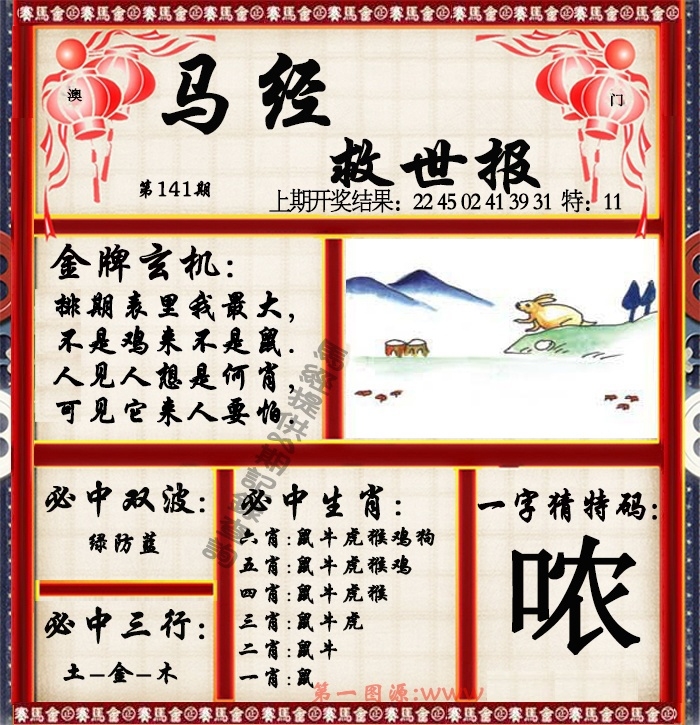 金馬賽金馬賽金馬賽金馬賽金馬賽金馬賽
澳
门
马经
救世报
第141期
上期开奖结果：22 45 02 41 39 31 特：11
金牌玄机：
排期表里我最大，
不是鸡来不是鼠.
人见人想是何肖，
可见它来人要怕.
必中双波：
绿防蓝
必中三行：
土-金-木
必中生肖：
六肖:鼠牛虎猴鸡狗
五肖:鼠牛虎猴鸡
四肖:鼠牛虎猴
三肖:鼠牛虎
二肖:鼠牛
一肖:鼠
一字猜特码：
哝
第一图源:www